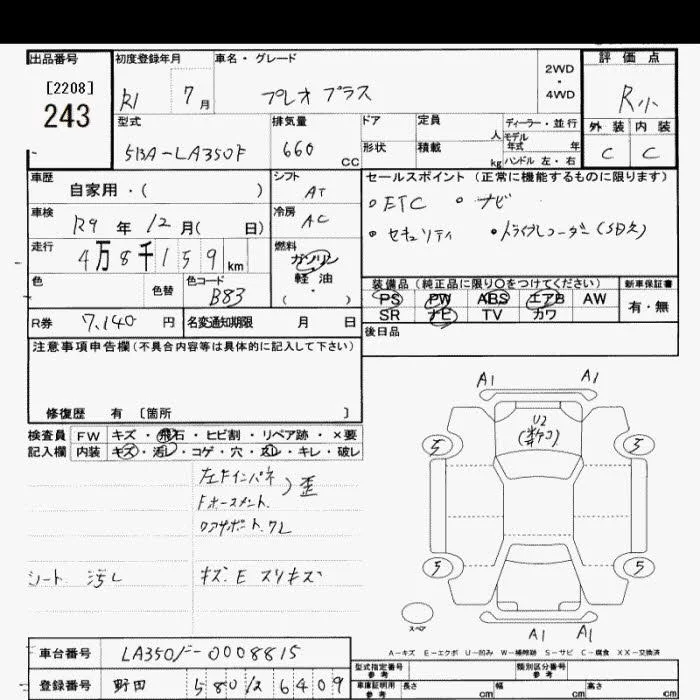 出品番号
[2208]
243
初度登録年月
R1 7月
車名・グレード
プレオ プラス
2WD
・
4WD
評価点
R小
外装 内装
C C
型式
5BA-LA350F
排気量
660 CC
ドア
形状
定員 人
積載 kg
ディーラー・並行
モデル
年式 年
ハンドル 左・右
車歴
自家用・( )
シフト
AT
車検
R9 年 12月( 日)
冷房
AC
走行
4万8千159 km
燃料
ガソリン
軽油
( ・ )
色
色替
色コード
B83
R券 7,140 円
名変通知期限 月 日
セールスポイント (正常に機能するものに限ります)
○ ETC ○ ナビ
● セキュリティ ● ドライブレコーダー(SD欠)
装備品 (純正品に限り○をつけてください)
PS PW ABS エアB AW
SR ナビ TV カワ
新車保証書
有・無
後日品
注意事項申告欄(不具合内容等は具体的に記入して下さい)
修復歴 有 〔箇所 〕
検査員
記入欄
FW キズ・飛石・ヒビ割・リペア跡・×要
内装 キズ・汚レ・コゲ・穴・スレ・キレ・破レ
左Fインパネ
Fホースメント
コアサポート 歪
シート 汚レ
キズ E スリキズ
A1 A1
U2
5 5
5 5
スペア
A1 A1
A-キズ E-エクボ U-凹み W-補修跡 S-サビ C-腐食 XX-交換済
車台番号 LA350F-0008815
登録番号 野田 580 い 6409
型式指定番号
参考
類別区分番号
参考
車庫証明用
参考
長さ cm 幅 cm 高さ cm